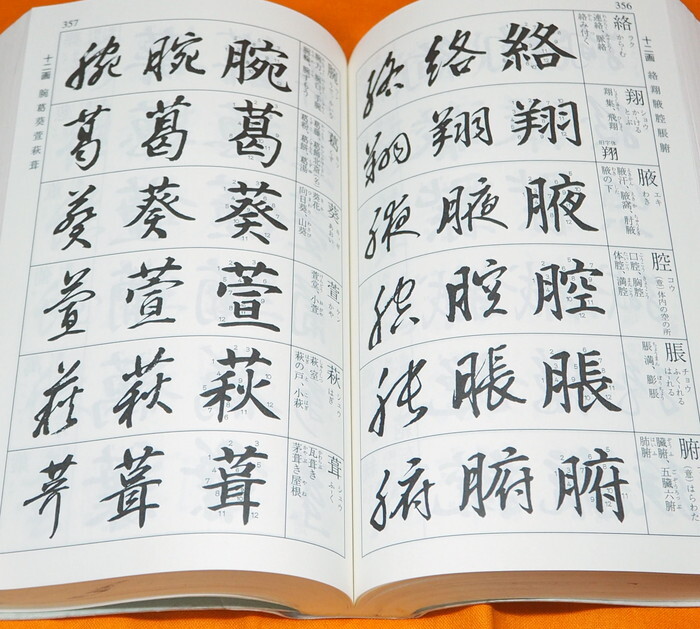 356
十二画 絡翔腋腔脹腑
絡 ラク からむ
連絡、脈絡
絡み付く
絡 絡 絡
翔 ショウ かける とぶ
翔集、飛翔
翔 翔 翔
腋 エキ わき
腋汗、腋窩、肘腋
腋の下
腋 腋 腋
腔 コウ (意)体内の空の所
口腔、胸腔
体腔、満腔
腔 腔 腔
脹 チョウ ふくれる はれる
脹満、膨脹
脹 脹 脹
腑 フ (意)はらわた
臓腑、五臓六腑
肺腑
腑 腑 腑
357
十二画 腕葛葵萱萩葺
腕 腕 腕
葛 葛 葛
葵
葵花
向日葵、山葵
葵 葵 葵
萱
萱堂、小萱
萱 萱 萱
萩 シュウ はぎ
萩の戸 小萩
萩 萩 萩
葺 シュウ ふく
瓦葺き
茅葺き屋根
葺 葺 葺